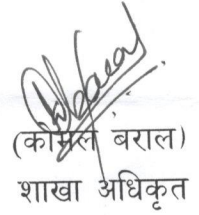 (कोमल बराल)
शाखा अधिकृत